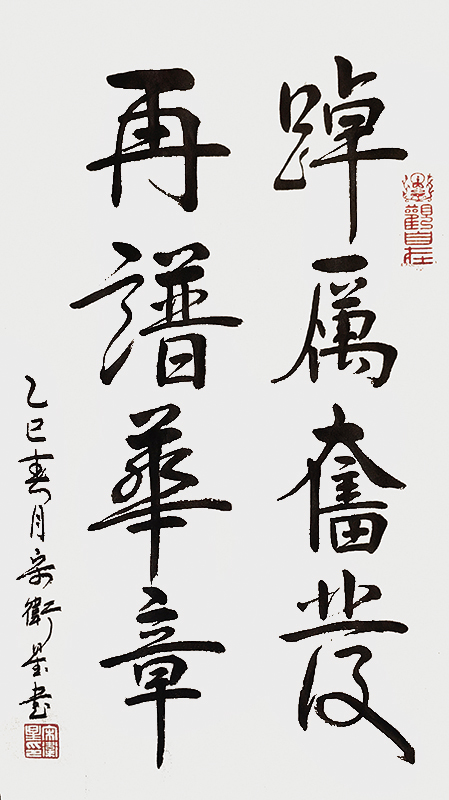 踔厲奮發
再譜華章
乙巳春月宋衛星書